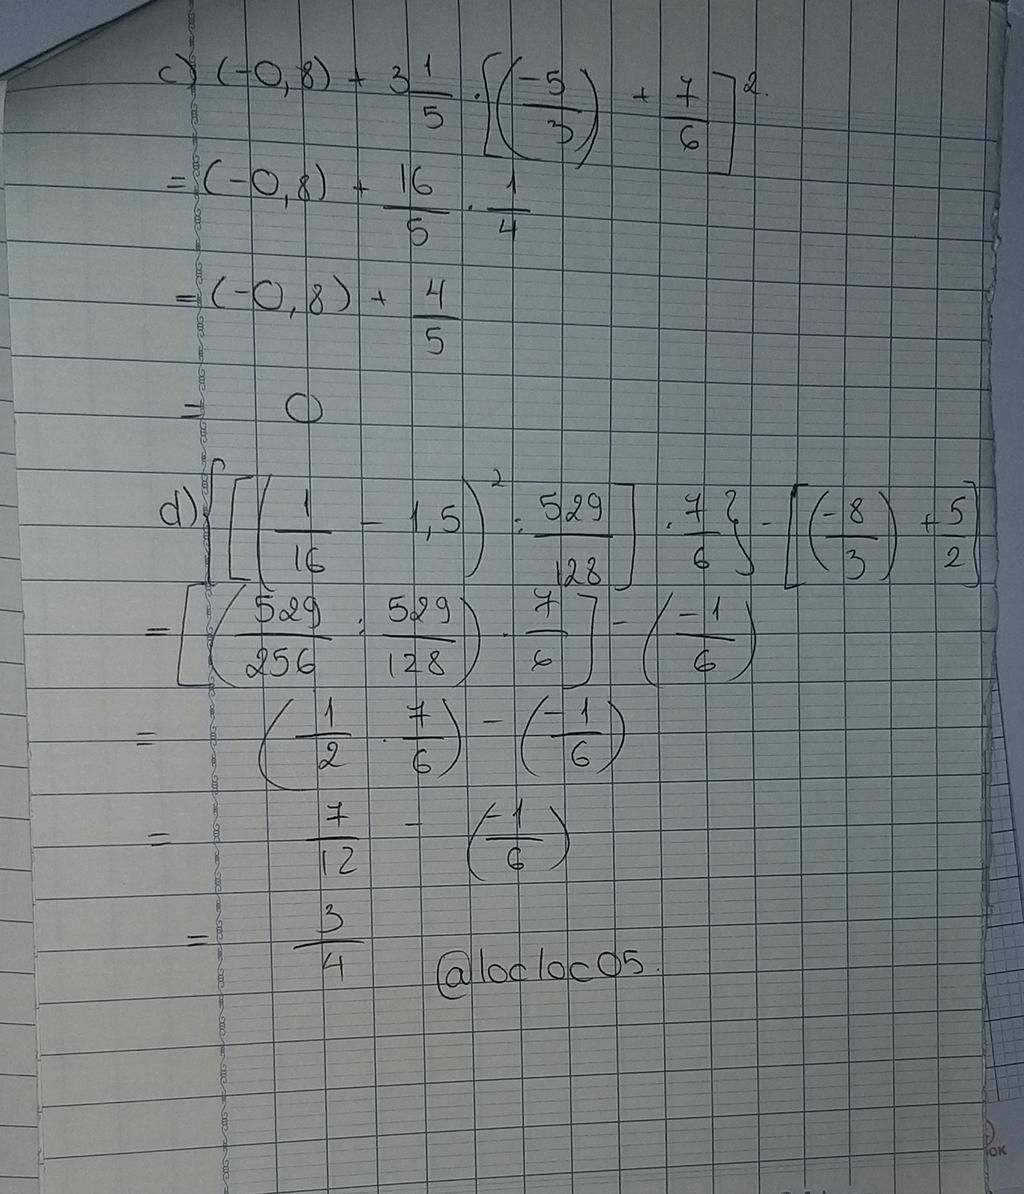 c) (-0,8) + 3 1/5 . [(-5/3) + 7/6]².
= (-0,8) + 16/5 . 1/4
= (-0,8) + 4/5
= 0
d) {[(1/16 - 1,5)² : 529/128] . 7/6} - [(-8/3) + 5/2]
= [(529/256 : 529/128) . 7/6] - (-1/6)
= (1/2 . 7/6) - (-1/6)
= 7/12 - (-1/6)
= 3/4
@locloc05.
OK